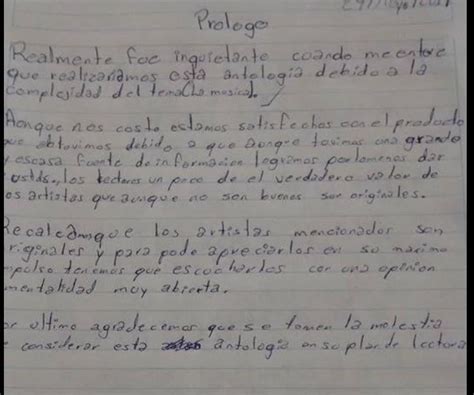 29/Mayo/201
Prologo
Realmente foe inquietante cuando me entere
que realizariamos esta antologia debido a la
complejidad del tema(La musica).
Aonque nos costo estamos satisfechos con el producto
que obtovimos debido a que aunque tovimos una grande
y escasa fuente de informacion logramos porlomenos dar
ustds, los lectores un poco de el verdadero valor de
os artistas que aunque no son buenos son originales.
Recalcamque los artistas mencionados son
riginales y para pode apreciarlos en su maximo
mpulso tenemos que escucharlos con una opinion
mentalidad muy abierta.
or ultimo agradecemos que se tomen la molestia
e considerar esta antologia en su plan de lectora